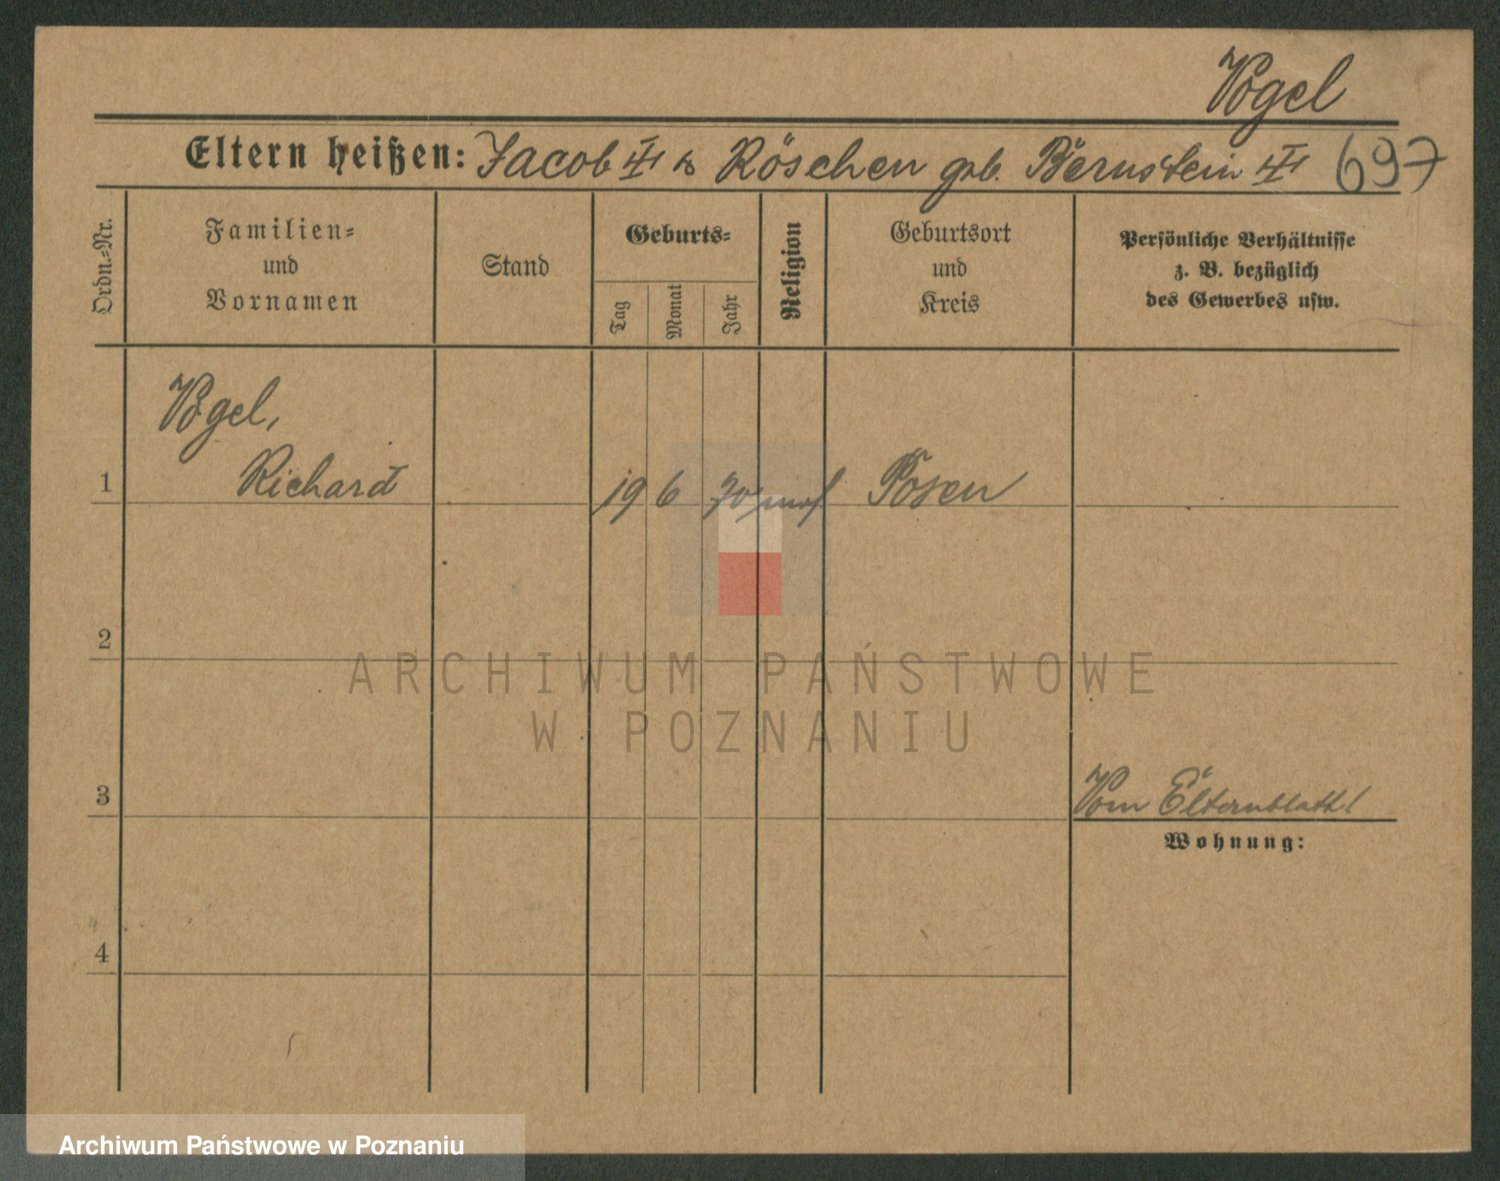 Vogel
Eltern heißen: Jacob III & Röschen geb. Bernstein III 697
Ordn.-Nr.
Familien-
und
Vornamen
Stand
Geburts-
Tag
Monat
Jahr
Religion
Geburtsort
und
Kreis
Persönliche Verhältnisse
z. B. bezüglich
des Gewerbes usw.
Vogel,
1 Richard 19 6 70 mos Posen
2
ARCHIWUM PAŃSTWOWE
W POZNANIU
3 Vom Elternblatt!
Wohnung:
4
Archiwum Państwowe w Poznaniu